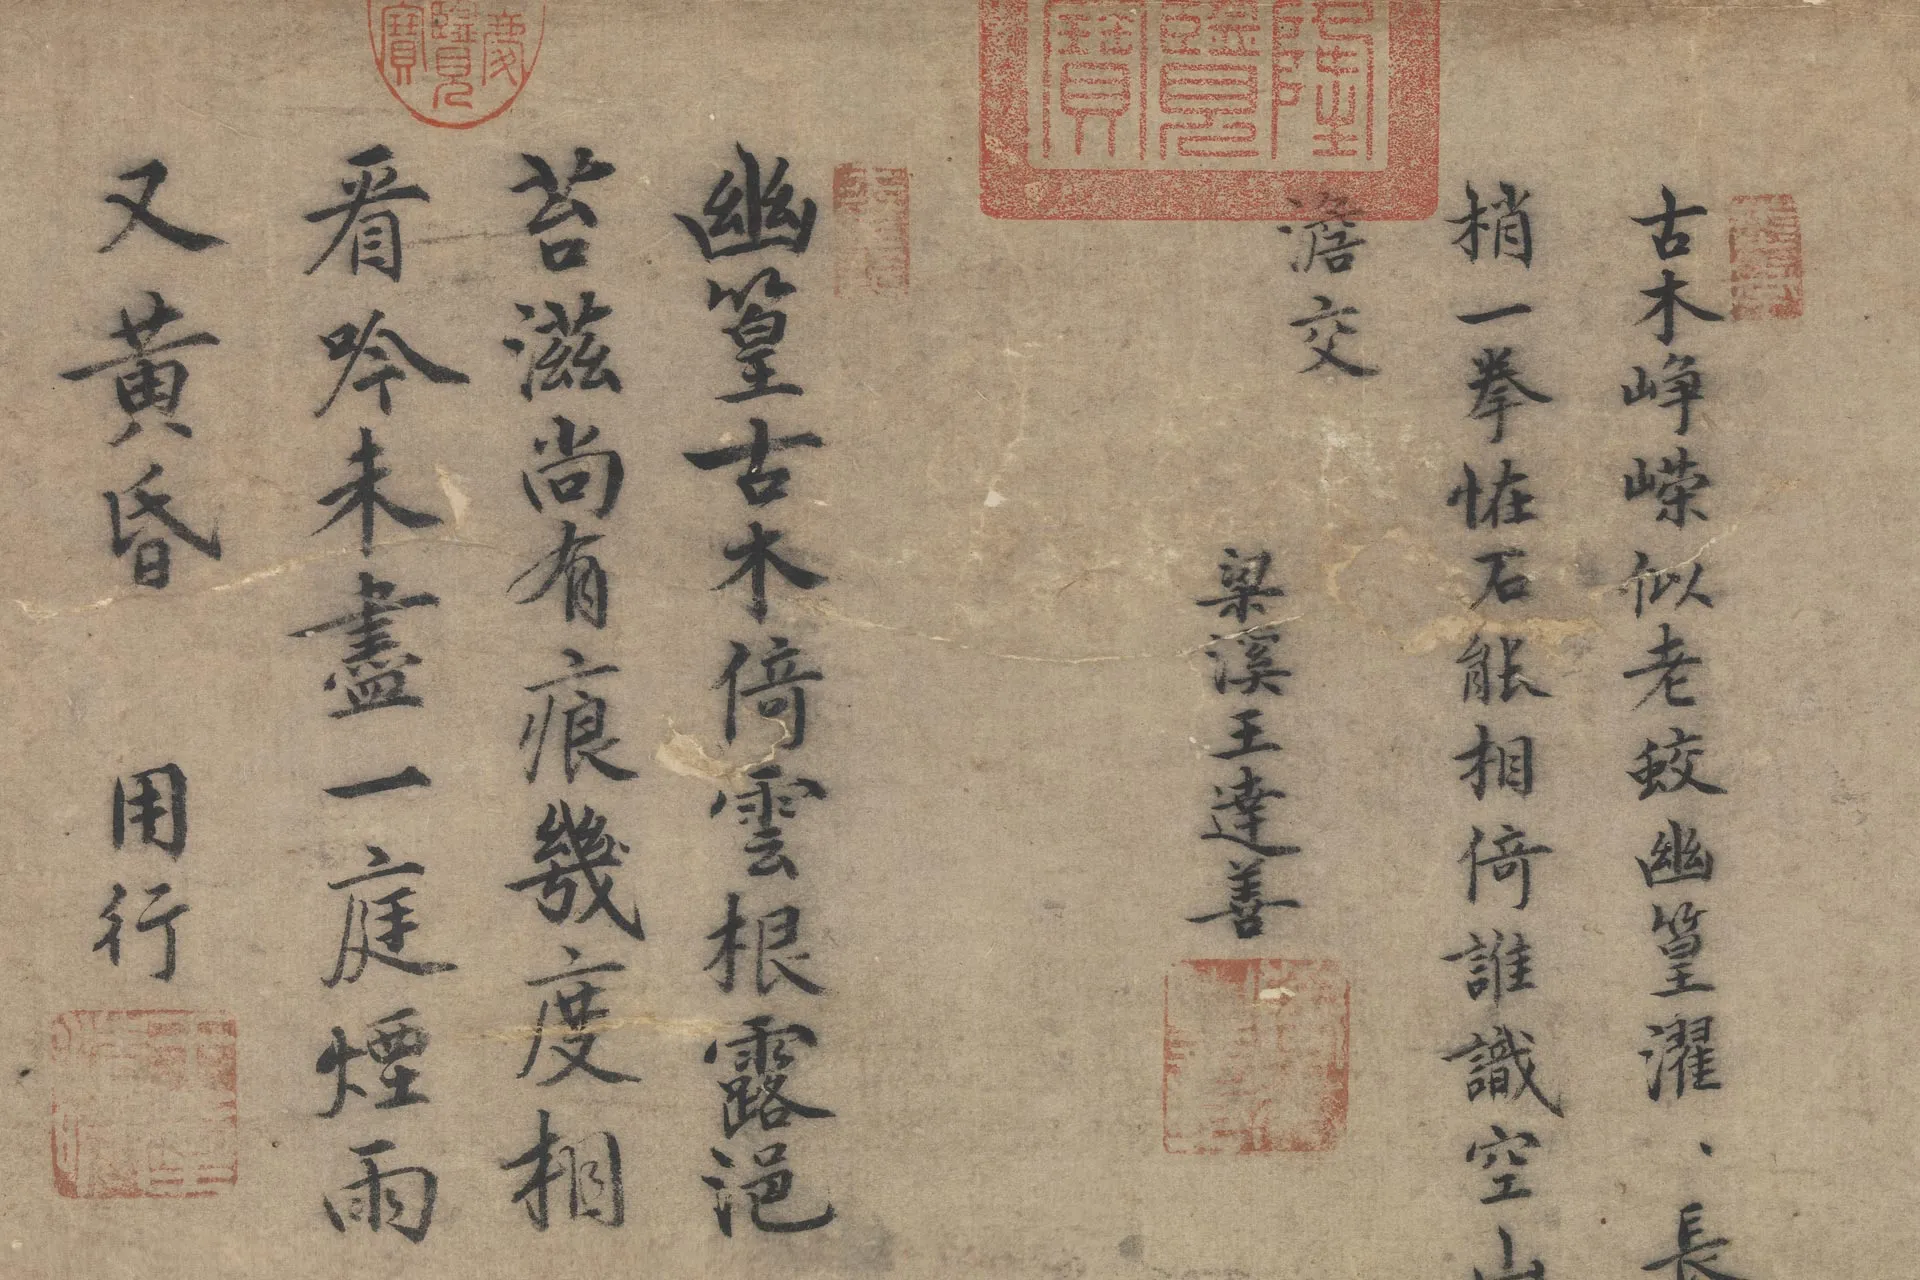 古木崢嶸似老蛟幽篁濯、長
梢一拳恠石能相倚誰識空山
澹交
梁溪王達善
隆覽寶
幽篁古木倚雲根露浥
苔滋尚有痕幾度相
看吟未盡一庭煙雨
又黃昏 用行
慶覽寶